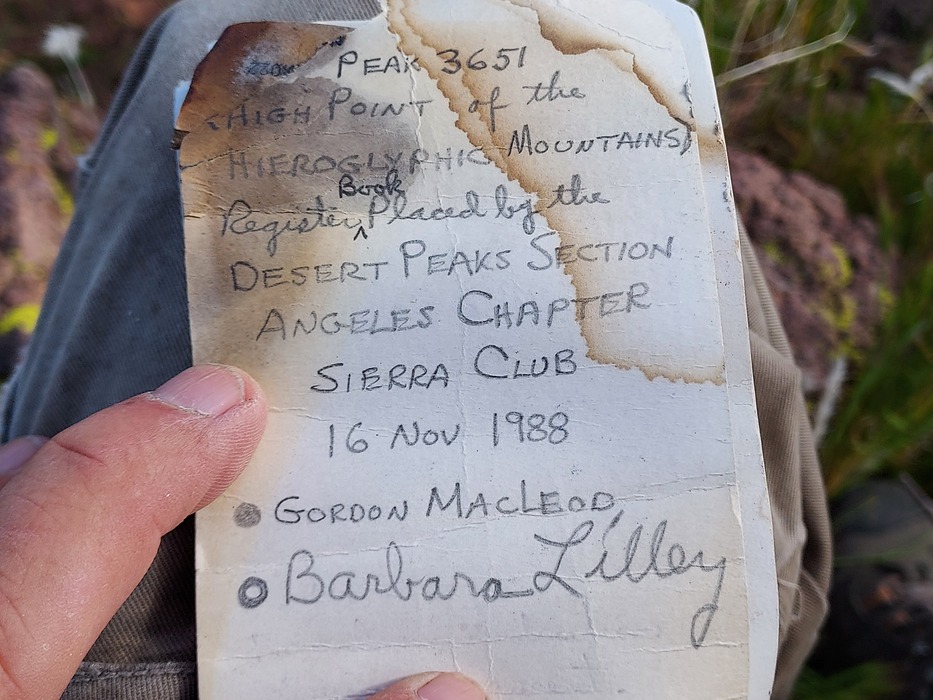 PEAK 3651
<HIGH POINT of the
HIEROGLYPHIC MOUNTAINS)
Book
Register ^ Placed by the
DESERT PEAKS SECTION
ANGELES CHAPTER
SIERRA CLUB
16 NOV 1988
GORDON MACLEOD
Barbara Lilley